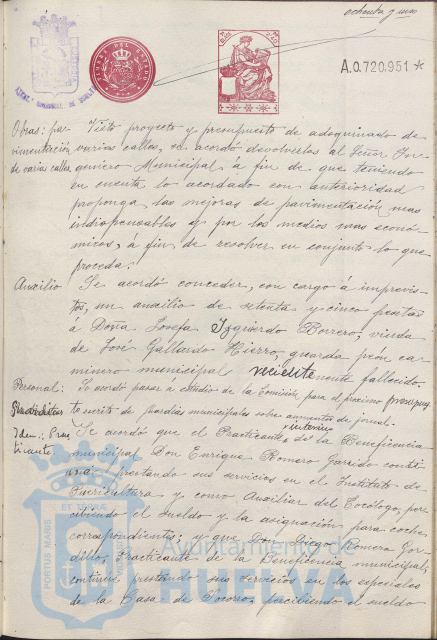 ochenta y uno
A.0.720,951 *
Obras: pa- Visto proyecto y presupuesto de adoquinado de
vimentación varias calles, se acordó devolverlos al Señor In-
de varias calles geniero Municipal á fin de que teniendo
en cuenta lo acordado con anterioridad
proponga las mejoras de pavimentación mas
indispensables y por los medios mas econó-
micos, á fin de resolver en conjunto lo que
proceda.
Auxilio Se acordó conceder, con cargo á imprevis-
tos, un auxilio de setenta y cinco pesetas
á Doña Josefa Izquierdo Borrero, viuda
de José Gallardo Hierro, guarda peón ca-
minero municipal recientemente fallecido.
Personal: Se acordó pasar á estudio de la Comisión para el próximo presupues
to escrito de guardias municipales sobre aumento de jornal.
interino
Idem: Prac- Se acordó que el Practicante de la Beneficencia
ticante municipal Don Enrique Romero Garrido conti-
núe prestando sus servicios en el Instituto de
Puericultura y como Auxiliar del Tocólogo, per-
cibiendo el sueldo y la asignación para coche
correspondientes; y que Don Diego Romero Gor-
dillo, Practicante de la Beneficencia municipal,
continúe prestando sus servicios en los especiales
de la Casa de Socorro, percibiendo el sueldo
Ayuntamiento de
HUELVA
PORTUS MARIS
ET TERRÆ